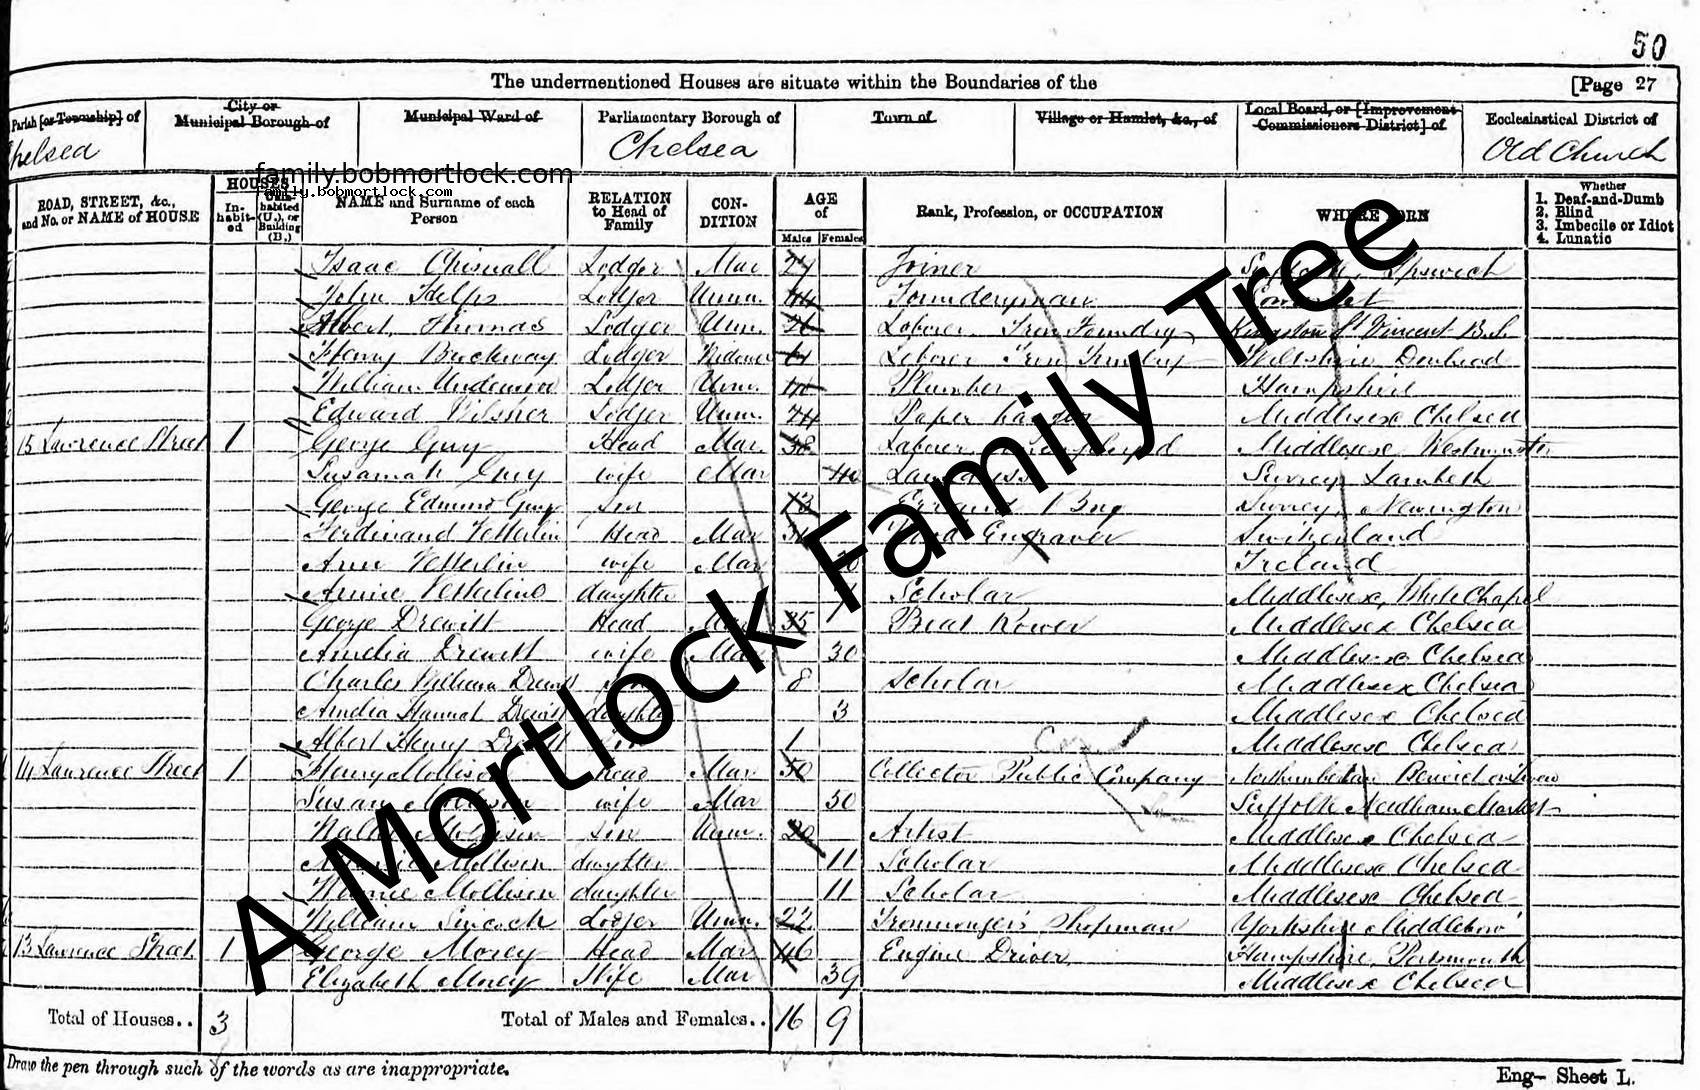 50
The undermentioned Houses are situate within the Boundaries of the [Page 27
Parish [or Township] of City or Municipal Borough of Municipal Ward of Parliamentary Borough of Town of Village or Hamlet, &c., of Local Board, or [Improvement Commissioners District] of Ecclesiastical District of
Chelsea Chelsea Old Church
family.bobmortlock.com
family.bobmortlock.com
ROAD, STREET, &c., and No. or NAME of HOUSE HOUSES In-habit-ed Unin-habited (U.), or Building (B.) NAME and Surname of each Person RELATION to Head of Family CON-DITION AGE of Males Females Rank, Profession, or OCCUPATION WHERE BORN Whether 1. Deaf-and-Dumb 2. Blind 3. Imbecile or Idiot 4. Lunatic
Isaac Chisnall Lodger Mar Joiner Ipswich
John Lodger Unm. 44 Founderyman
Albert Thomas Lodger Unm. 26 Laborer Iron Foundry Kingston St Vincent
Henry Lodger Widower 61 Laborer Iron Wiltshire
William Underwood Lodger Unm. Plumber Hampshire
Edward Lodger Unm. 74 Paper hanger Middlesex Chelsea
15 Lawrence Street 1 George Guy Head Mar 38 Laborer Middlesex Westminster
Susannah Guy wife Mar 40 Laundress Surrey Lambeth
George Edmund Guy son 13 Errand Boy Surrey, Newington
Ferdinand Head Mar Engraver Switzerland
Ann wife Mar Ireland
Annie daughter Scholar Middlesex, White Chapel
George Drewitt Head Mar 35 Middlesex Chelsea
Amelia Drewitt wife Mar 30 Middlesex Chelsea
Charles William Drewitt son 8 Scholar Middlesex Chelsea
Amelia Hannah Drewitt daughter 3 Middlesex Chelsea
Albert Henry Drewitt son 1 Middlesex Chelsea
14 Lawrence Street 1 Henry Mollison Head Mar 50 Collector Public Company Northumberland Berwick on Tweed
Susan Mollison wife Mar 50 Suffolk Needham Market
Mollison son Unm. 20 Artist Middlesex Chelsea
Mollison daughter 11 Scholar Middlesex Chelsea
Mollison daughter 11 Scholar Middlesex Chelsea
William Lodger Unm. 22 Ironmonger's Shopman Yorkshire Middlesboro'
13 Lawrence Street 1 George Morey Head Mar 46 Engine Driver Hampshire, Portsmouth
Elizabeth Morey Wife Mar 39 Middlesex Chelsea
Total of Houses.. 3 Total of Males and Females.. 16 9
Draw the pen through such of the words as are inappropriate.
Eng- Sheet L.
A Mortlock Family Tree